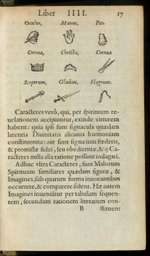 Liber IIII. 17
Oculus, Manus, Pes.
Corona, Crista, Cornua.
Sceptrum, Gladius, Flagrum.
Caracteres verò, qui, per spiritum re-
uelationem accipiuntur, exinde virtutem
habent: quia ipsi sunt signacula quædam
latentia Diuinitatis alicuius harmoniam
constituentia: aut sunt signa initi fœderis,
& promissæ fidei, seu obedientiæ, & Ca-
racteres nulla alia ratione possunt indagari.
Adhuc vltra Caracteres, sunt Malorum
Spirituum familiares quædam figuræ, &
Imagines, sub quarum forma inuocantibus
occurrere, & comparere solent. Hæ autem
Imagines inueniuntur per tabulam sequen-
tem, secundum rationem literarum con-
B stituen-